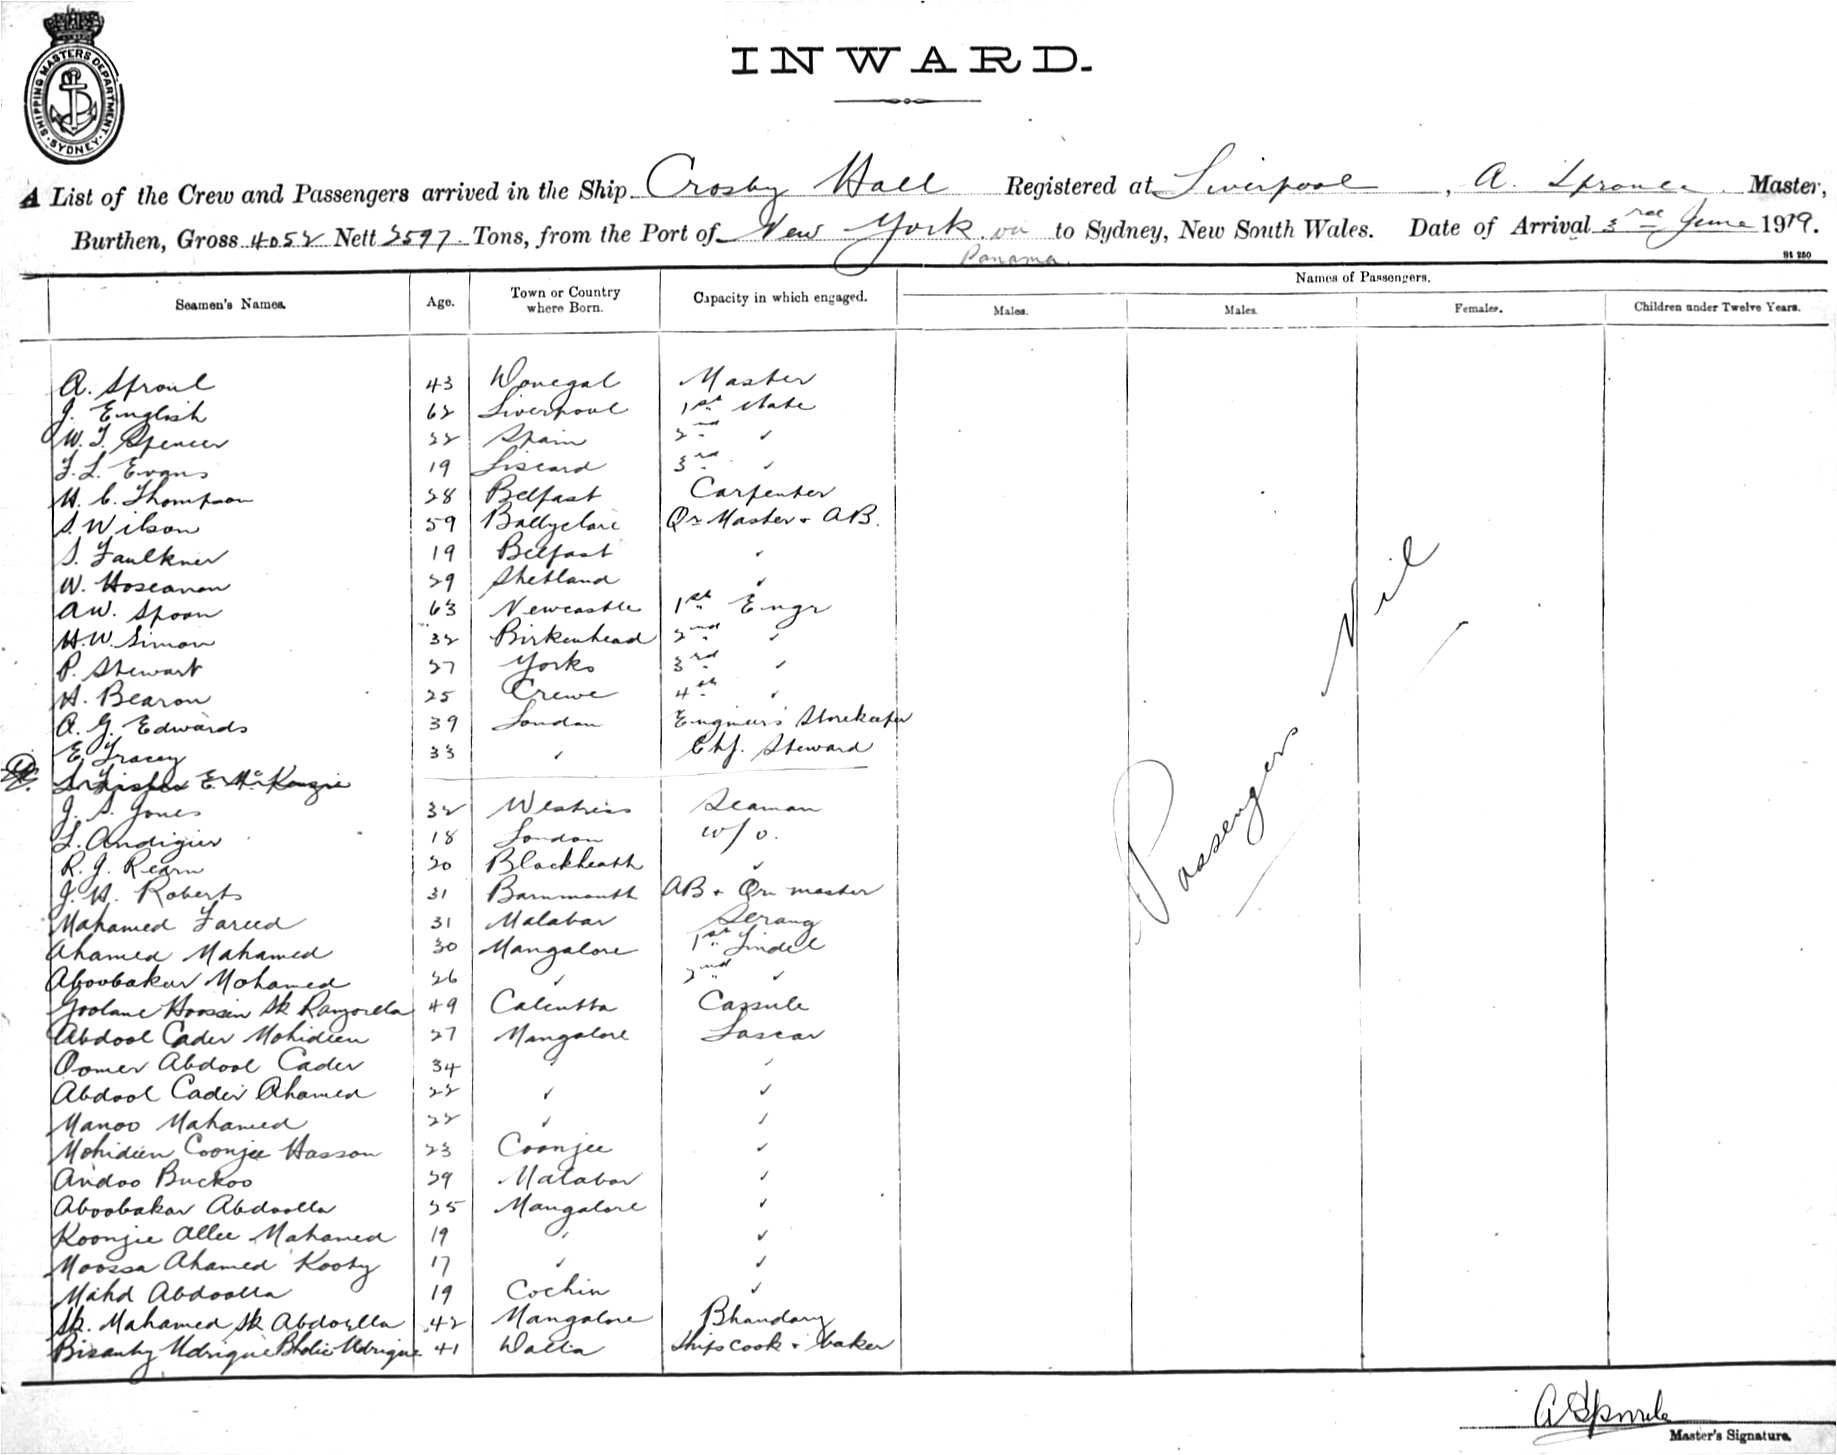 SHIPPING MASTERS DEPARTMENT
SYDNEY
INWARD.
A List of the Crew and Passengers arrived in the Ship Crosby Hall Registered at Liverpool, A. Master,
Burthen, Gross 4052 Nett 2597 Tons, from the Port of New York via Panama to Sydney, New South Wales. Date of Arrival 3rd June 1919.
Seamen's Names. Age. Town or Country where Born. Capacity in which engaged. Names of Passengers.
Males. Males. Females. Children under Twelve Years.
A. Sproul 43 Donegal Master
J. English 62 Liverpool 1st Mate
W. T. Spencer 22 Spain 2nd ✓
F. L. Evans 19 Liscard 3rd ✓
H. C. Thompson 28 Belfast Carpenter
S. Wilson 59 Ballyclare Qr Master & AB.
S. Faulkner 19 Belfast ✓
W. 29 Shetland ✓
A W. Spoon 63 Newcastle 1st Engr
H. W. Simon 32 Birkenhead 2nd ✓
P. Stewart 27 Yorks 3rd ✓
H. Bearon 25 Crewe 4th ✓
A. G. Edwards 39 London Engineer's Storekeeper
E Tracey 33 ✓ Chf. Steward
E. McKenzie
J. S. Jones 32 Seaman
L. Andigier 18 London w/o.
R. J. 20 Blackheath ✓
J. H. Roberts 31 Barnmouth AB & Qr master
Mahamed Fareed 31 Malabar Serang
Ahamed Mahamed 30 Mangalore 1st Tindel
Aboobakur Mohamed 26 ✓ 2nd ✓
Goolane Hoosein Sk 49 Calcutta Cassule
Abdool Cader Mohidien 27 Mangalore Lascar
Oomer Abdool Cader 34 ✓ ✓
Abdool Cader Ahamed 22 ✓ ✓
Manoo Mahamed 22 ✓ ✓
Mohideen Coonjee Hasson 23 Coonjee ✓
Andoo Buckoo 29 Malabar ✓
Aboobakar Abdoolla 25 Mangalore ✓
Koonjie Allee Mahamed 19 ✓ ✓
Moossa Ahamed Kooty 17 ✓ ✓
Mahd Abdoolla 19 Cochin ✓
Sk. Mahamed Sk Abdoolla 42 Mangalore Bhandary
41 Ships cook & baker
Passengers Nil
Master's Signature.